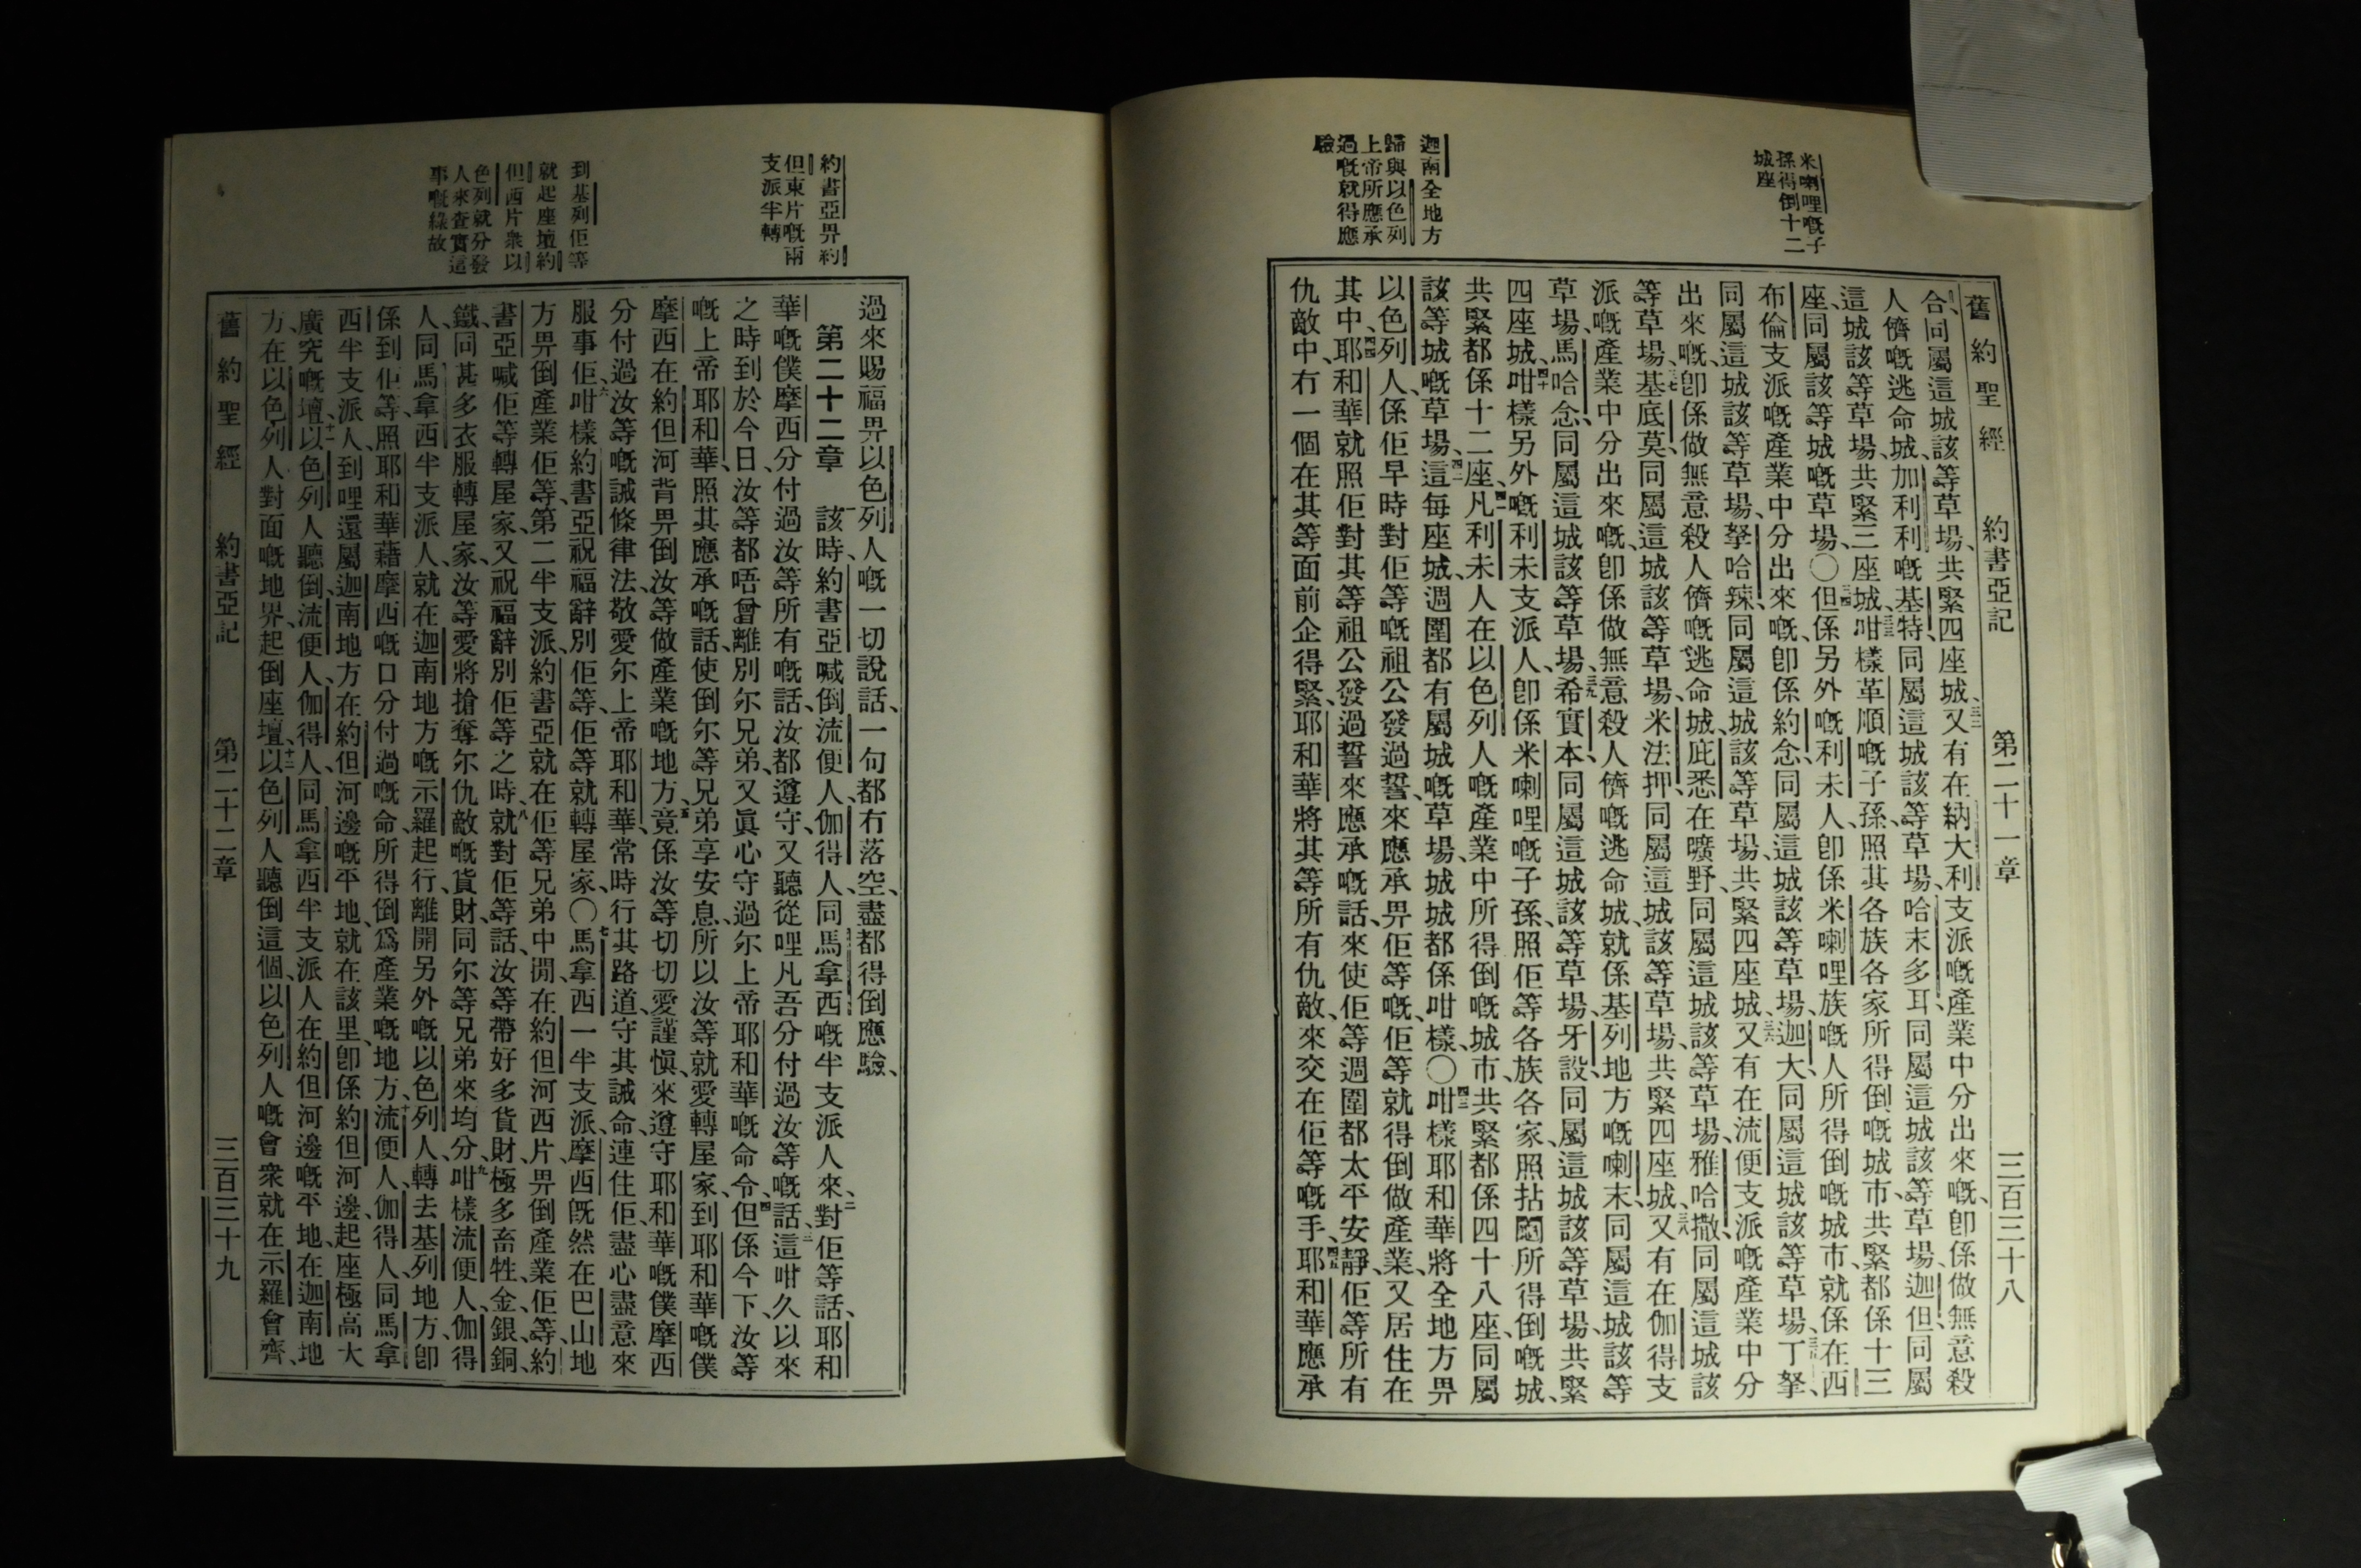 米喇哩嘅子
孫得倒十二
城座
迦南全地方
歸與以色列
上帝所應承
過嘅就得應
驗
舊約聖經 約書亞記 第二十一章 三百三十八
合、同屬這城該等草場、共緊四座城、三二又有在納大利支派嘅產業中分出來嘅、卽係做無意殺
人儕嘅逃命城、加利利嘅基特、同屬這城該等草場、哈末多耳、同屬這城該等草場、迦但、同屬
這城該等草場、共緊三座城、三三咁樣革順嘅子孫、照其各族各家所得倒嘅城市、共緊都係十三
座、同屬該等城嘅草場、〇三四但係另外嘅利未人、卽係米喇哩族嘅人所得倒嘅城市、就係在西
布倫支派嘅產業中分出來嘅、卽係約念、同屬這城該等草場、迦大、同屬這城該等草場、三五丁拏、
同屬這城該等草場、拏哈辣、同屬這城該等草場、共緊四座城、三六又有在流便支派嘅產業中分
出來嘅、卽係做無意殺人儕嘅逃命城、庇悉、在曠野、同屬這城該等草場、雅哈撒、同屬這城該
等草場、三七基底莫、同屬這城該等草場、米法押、同屬這城該等草場、共緊四座城、三八又有在伽得支
派嘅產業中分出來嘅、卽係做無意殺人儕嘅逃命城、就係基列地方嘅喇末、同屬這城該等
草場、馬哈念、同屬這城該等草場、三九希實本、同屬這城該等草場、牙設、同屬這城該等草場、共緊
四座城、四十咁樣另外嘅利未支派人、卽係米喇哩嘅子孫、照佢等各族各家、照拈䦰所得倒嘅城、
共緊都係十二座、四一凡利未人在以色列人嘅產業中所得倒嘅城市、共緊都係四十八座、同屬
該等城嘅草場、四二這每座城、週圍都有屬城嘅草場、城城都係咁樣、〇四三咁樣耶和華將全地方畀
以色列人、係佢早時對佢等嘅祖公發過誓、來應承畀佢等嘅、佢等就得倒做產業、又居住在
其中、四四耶和華就照佢對其等祖公發過誓來應承嘅話、來使佢等週圍都太平安靜、佢等所有
仇敵中、冇一個在其等面前企得緊、耶和華將其等所有仇敵、來交在佢等嘅手、四五耶和華應承
約書亞畀約
但東片嘅兩
支派半轉
到基列佢等
就起座壇約
但西片衆以
色列就分發
人來查實這
事嘅緣故
過來賜福畀以色列人嘅一切說話、一句都冇落空、盡都得倒應驗、
第二十二章 一該時、約書亞喊倒流便人、伽得人、同馬拿西嘅半支派人來、二對佢等話、耶和
華嘅僕摩西分付過汝等所有嘅話、汝都遵守、又聽從哩凡吾分付過汝等嘅話、三這咁久以來
之時到於今日、汝等都唔曾離別尔兄弟、又眞心守過尔上帝耶和華嘅命令、四但係今下、汝等
嘅上帝耶和華、照其應承嘅話、使倒尔等兄弟享安息、所以汝等就愛轉屋家、到耶和華嘅僕
摩西在約但河背畀倒汝等做產業嘅地方、五竟係汝等切切愛謹愼、來遵守耶和華嘅僕摩西
分付過汝等嘅誡條律法、敬愛尔上帝耶和華、常時行其路道、守其誡命、連住佢、盡心盡意來
服事佢、六咁樣約書亞祝福辭別佢等、佢等就轉屋家、〇七馬拿西一半支派、摩西旣然在巴山地
方畀倒產業佢等、第二半支派、約書亞就在佢等兄弟中間、在約但河西片、畀倒產業佢等、約
書亞喊佢等轉屋家、又祝福辭別佢等之時、八就對佢等話、汝等帶好多貨財、極多畜牲、金、銀、銅、
鐵、同甚多衣服轉屋家、汝等愛將搶奪尔仇敵嘅貨財、同尔等兄弟來均分、九咁樣流便人、伽得
人、同馬拿西半支派人、就在迦南地方嘅示羅起行、離開另外嘅以色列人、轉去基列地方、卽
係到佢等、照耶和華藉摩西嘅口分付過嘅命、所得倒爲產業嘅地方、十流便人、伽得人、同馬拿
西半支派人、到哩還屬迦南地方、在約但河邊嘅平地、就在該里、卽係約但河邊、起座極高大
廣究嘅壇、十一以色列人聽倒、流便人、伽得人、同馬拿西半支派人、在約但河邊嘅平地、在迦南地
方、在以色列人對面嘅地界、起倒座壇、十二以色列人聽倒這個、以色列人嘅會衆就在示羅會齊、
舊約聖經 約書亞記 第二十二章 三百三十九